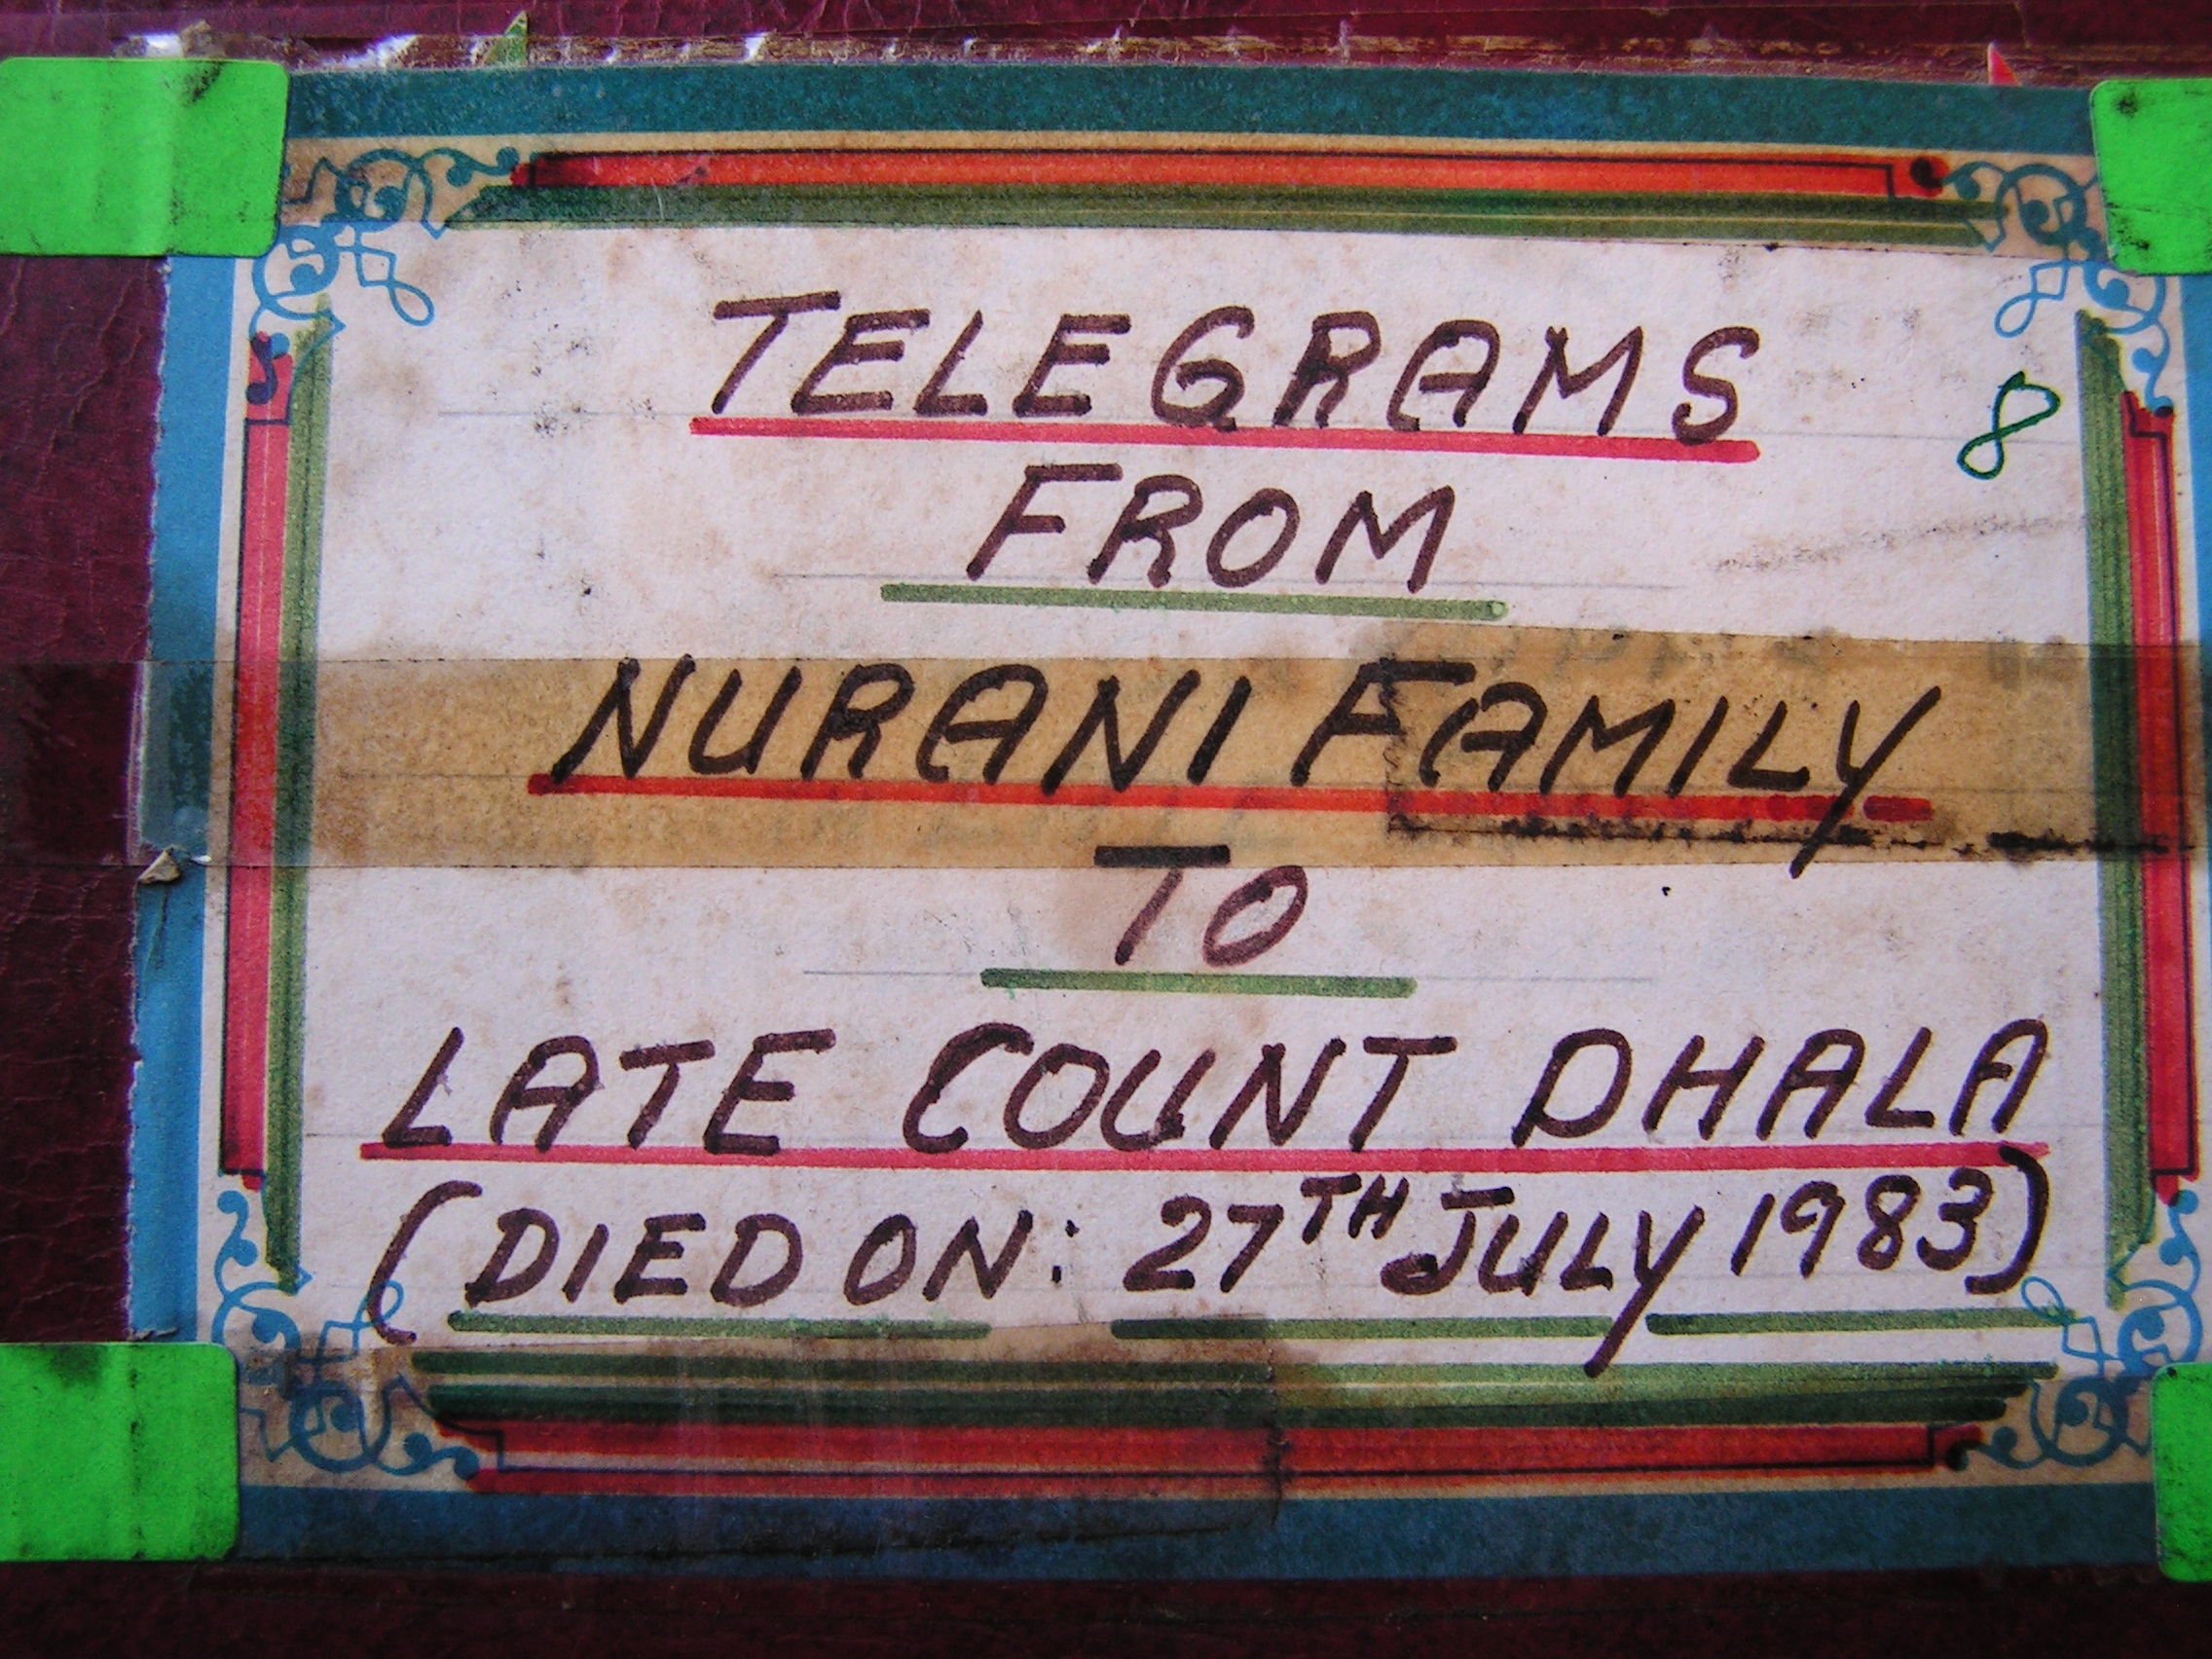 TELEGRAMS
8
FROM
NURANI FAMILY
TO
LATE COUNT DHALA
(DIED ON: 27TH JULY 1983)